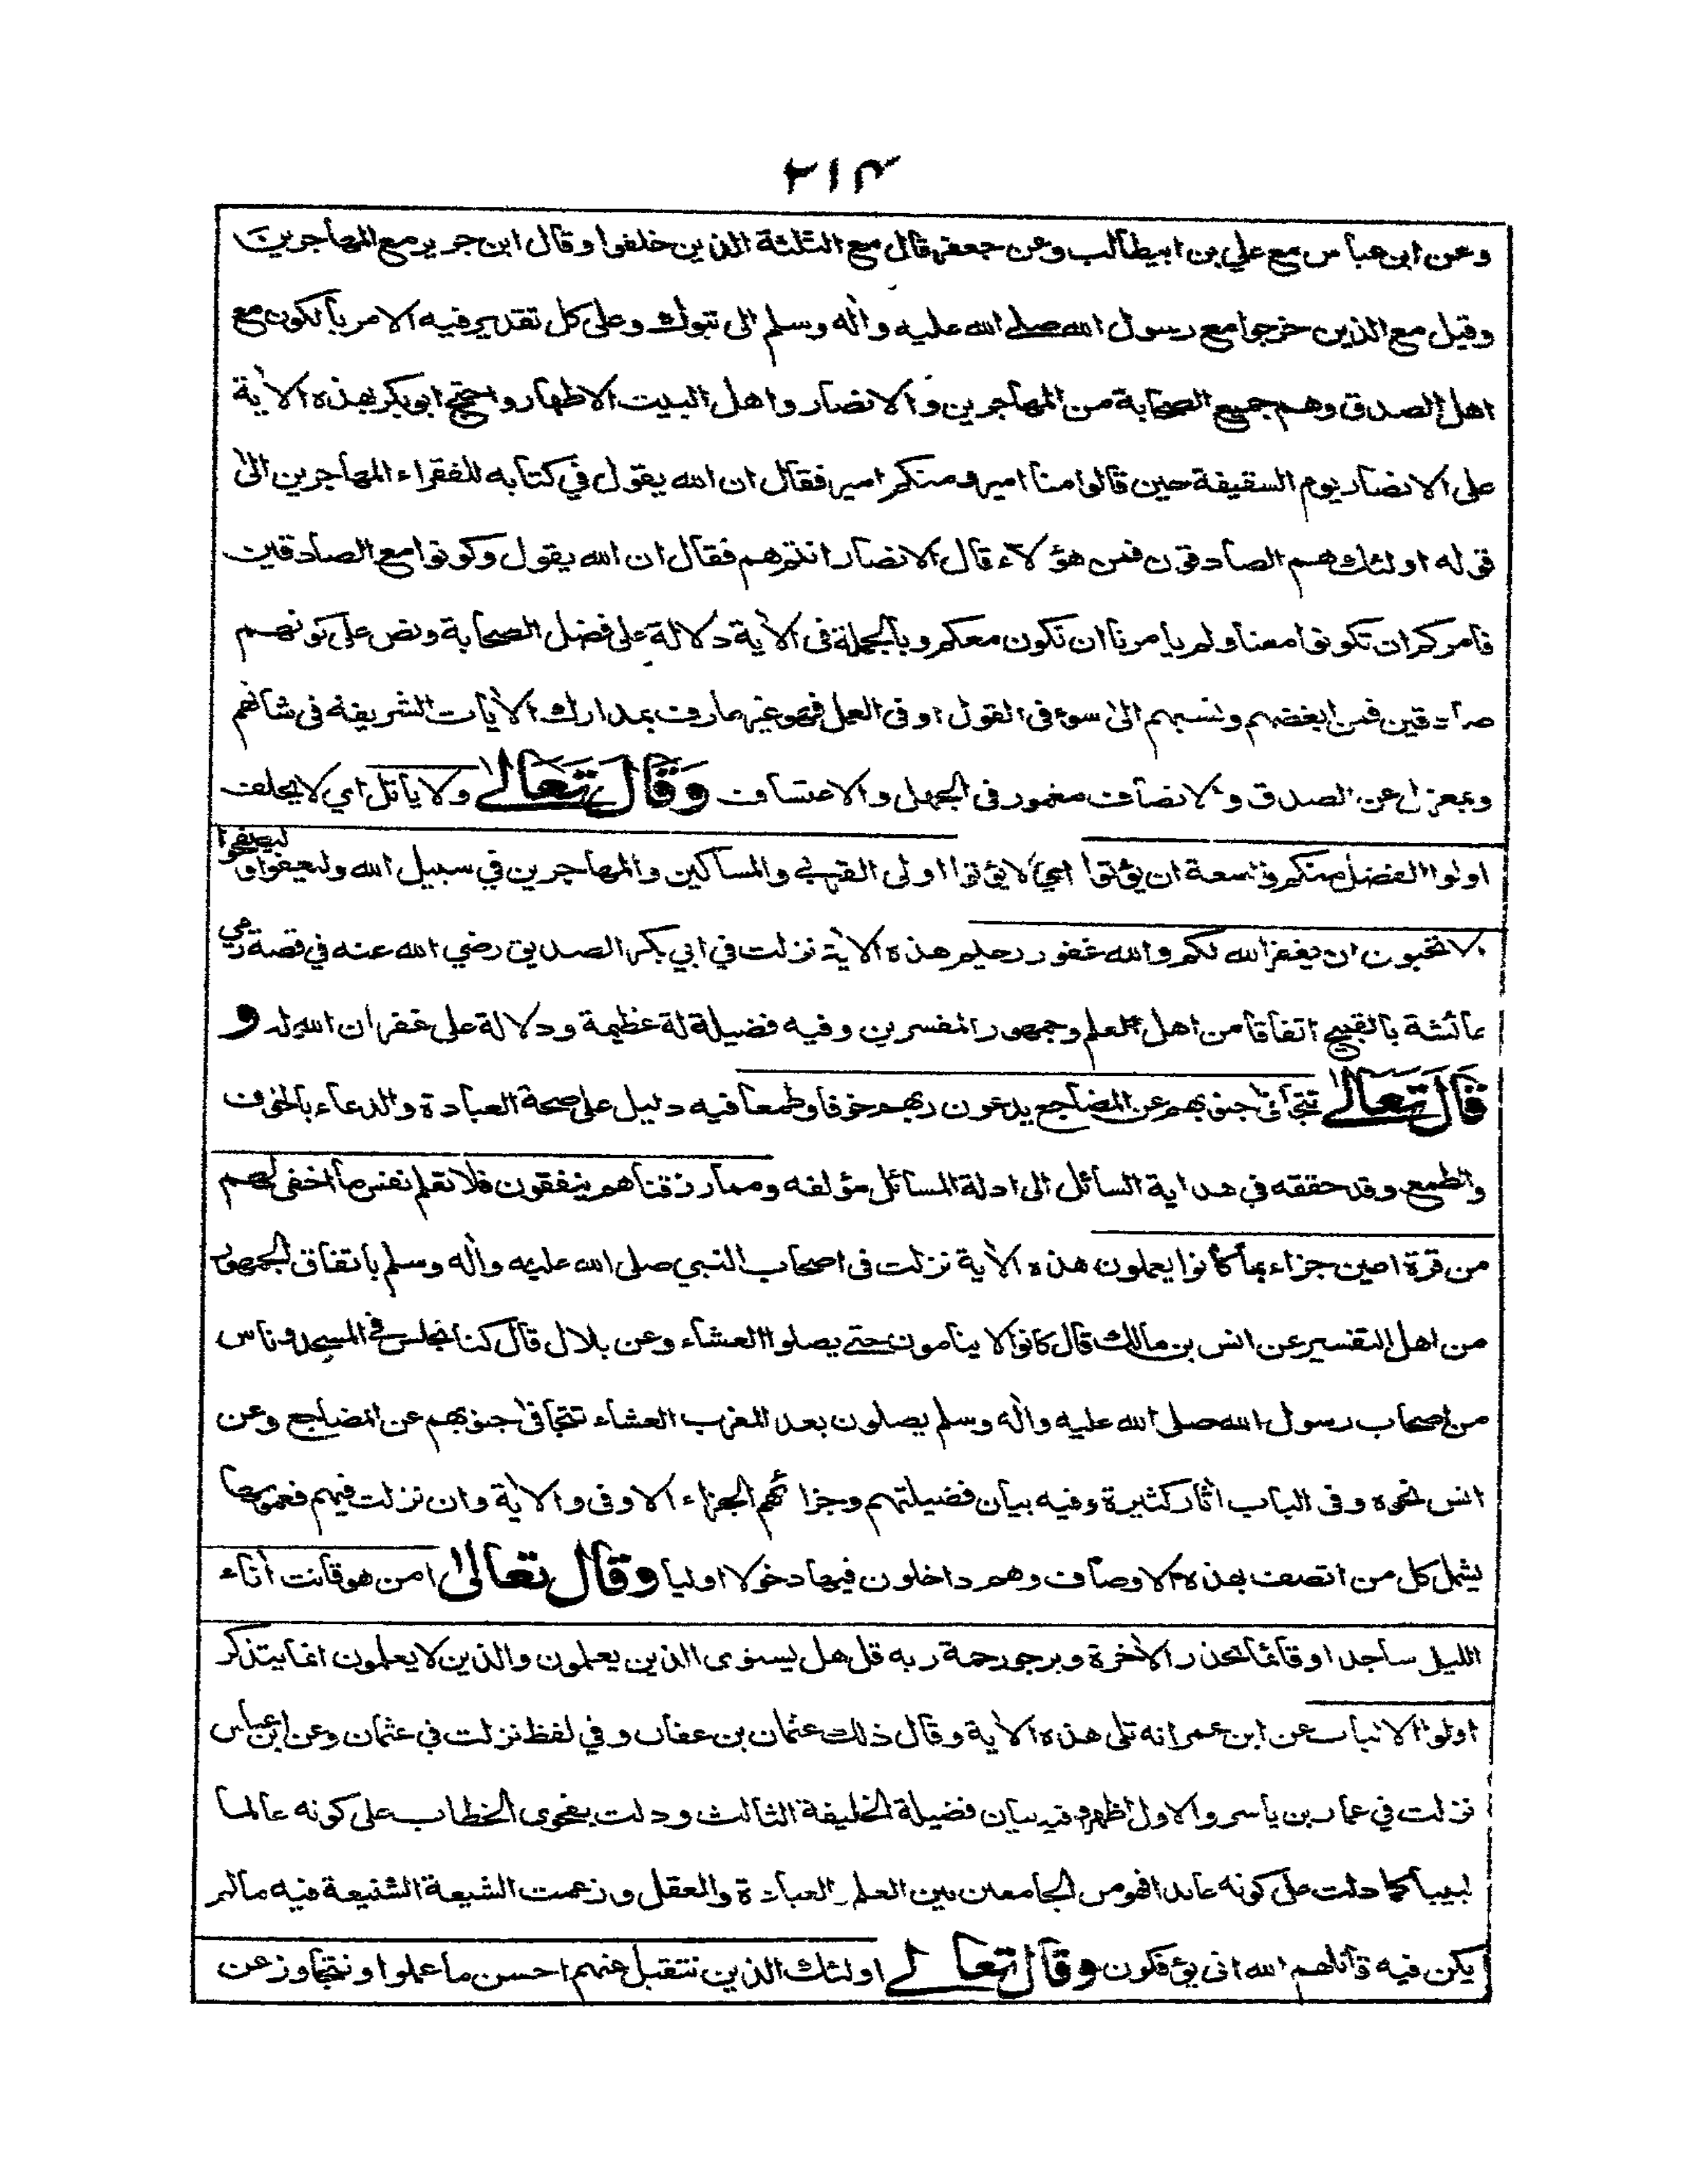 ٢١٣
وعن ابن عباس مع علي بن ابيطالب وعن جعفر قال مع الثلثة الذين خلفوا وقال ابن جرير مع المهاجرين
وقيل مع الذين خرجوا مع رسول الله صلى الله عليه واٰله وسلم الى تبوك وعلى كل تقدير فيه الامر بالكون مع
اهل الصدق وهم جميع الصحابة من المهاجرين والانصار واهل البيت الاطهار واحتج ابوبكر بهذه الاٰية
على الانصار يوم السقيفة حين قالوا منا امير ومنكم امير فقال ان الله يقول في كتابه للفقراء المهاجرين الىٰ
قوله اولئك هم الصادقون فمن هؤلاء قال الانصار انتم هم فقال ان الله يقول وكونوا مع الصادقين
فامركم ان تكونوا معنا ولم يامرنا ان نكون معكم وبالجملة فى الاٰية دلالة على فضل الصحابة ونص على كونهم
صادقين فمن ابغضهم ونسبهم الىٰ سوء فى القول او فى العمل فهو غير عارف بمدارك الاٰيات الشريفة فى شانهم
وبمعزل عن الصدق والانصاف مغمور فى الجهل والاعتساف وَقَالَ تَعَالىٰ ولا ياتل اي لا يحلف
اولوا الفضل منكم والسعة ان يؤتوا اي لا يؤتوا اولى القربى والمساكين والمهاجرين في سبيل الله وليعفوا وليصفحوا
الا تحبون ان يغفر الله لكم والله غفور رحيم هذه الاٰية نزلت في ابي بكر الصديق رضي الله عنه في قصة رمي
عائشة بالقبيح اتفاقا من اهل العلم وجمهور المفسرين وفيه فضيلة له عظيمة ودلالة على غفران الله له و
قَالَ تَعَالىٰ تتجافىٰ جنوبهم عن المضاجع يدعون ربهم خوفا وطمعا فيه دليل على صحة العبادة والدعاء بالخوف
والطمع وقد حققه في هداية السائل الى ادلة المسائل مؤلفه ومما رزقناهم ينفقون فلا تعلم نفس ما اخفى لهم
من قرة اعين جزاء بما كانوا يعملون هذه الاٰية نزلت فى اصحاب النبي صلى الله عليه واٰله وسلم باتفاق الجمهور
من اهل التفسير عن انس بن مالك قال كانوا لا ينامون حتى يصلوا العشاء وعن بلال قال كنا نجلس فى المسجد وناس
من اصحاب رسول الله صلى الله عليه واٰله وسلم يصلون بعد المغرب العشاء تتجافىٰ جنوبهم عن المضاجع وعن
انس نحوه وفى الباب اٰثار كثيرة وفيه بيان فضيلتهم وجزائهم الجزاء الاوفى والاٰية وان نزلت فيهم فعمومها
يشمل كل من اتصف بهذه الاوصاف وهم داخلون فيها دخولا اوليا وقال تعالىٰ امن هو قانت اٰناء
الليل ساجدا وقائما يحذر الاٰخرة ويرجو رحمة ربه قل هل يستوى الذين يعلمون والذين لا يعلمون انما يتذكر
اولوا الالباب عن ابن عمر انه تلى هذه الاٰية وقال ذلك عثمان بن عفان وفي لفظ نزلت في عثمان وعن ابن عباس
نزلت في عمار بن ياسر والاول اظهر وفيه بيان فضيلة الخليفة الثالث ودلت بفحوى الخطاب على كونه عالما
لبيبا كما دلت على كونه عابدا فهو من الجامعين بين العلم والعبادة والعقل وزعمت الشيعة الشنيعة فيه ما لم
يكن فيه قاتلهم الله انى يؤفكون وقال تعالے اولئك الذين نتقبل عنهم احسن ما عملوا ونتجاوز عن